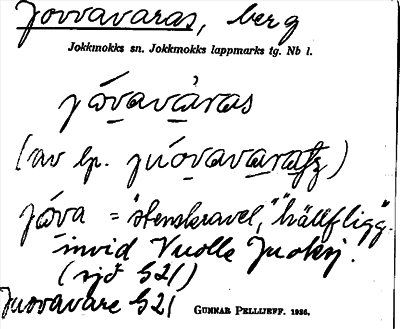 Jovvavaras, berg
Jokkmokks sn. Jokkmokks lappmarks tg. Nb l.
jóvavàras
(av lp.
jóva = "stenskravel," "hällfligg".
invid Vuolle Juoksj.
(sjö G21)
Juovavare G21
GUNNAR PELLIJEFF. 1936.